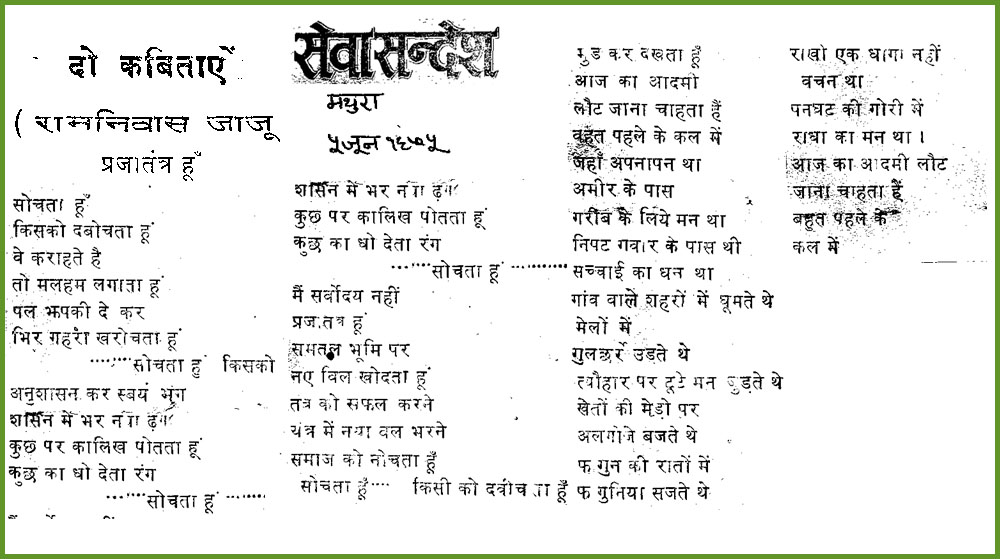 दो कबिताऐं
( रामनिवास जाजू
प्रजातंत्र हूँ
सोचता हूँ
किसको दबोचता हूं
वे कराहते है
तो मलहम लगाता हूं
पल झपकी दे कर
भिर गहरा खरोचता हूं
........सोचता हूं किसको
अनुशासन कर स्वयं भृंग
शासन में भर नया ढंग
कुछ पर कालिख पोतता हूं
कुछ का धो देता रंग
........सोचता हूं ........
सेवासन्देश
मथुरा
५ जून १९७५
शासन में भर नया ढंग
कुछ पर कालिख पोतता हूं
कुछ का धो देता रंग
........सोचता हूं ........
मैं सर्वोदय नहीं
प्रजातंत्र हूं
समतल भूमि पर
नए बिल खोदता हूं
तंत्र को सफल करने
यंत्र में नया बल भरने
समाज को नोचता हूँ
सोचता हूँ.... किसी को दबोचता हूँ
मुड कर दखता हूँ
आज का आदमी
लौट जाना चाहता हैं
बहुत पहले के कल में
जहाँ अपनापन था
अमीर के पास
गरीब के लिये मन था
निपट गवार के पास थी
सच्चाई का धन था
गांव वाले शहरों में घूमते थे
मेलों में
गुलछर्रे उड़ते थे
त्यौहार पर टूटे मन जुड़ते थे
खेतों की मेड़ो पर
अलगोजे बजते थे
फागुन की रातों में
फागुनिया सजते थे
राखी एक धागा नहीं
वचन था
पनघट की गोरी में
राधा का मन था ।
आज का आदमी लौट
जाना चाहता हैं
बहुत पहले के
कल में